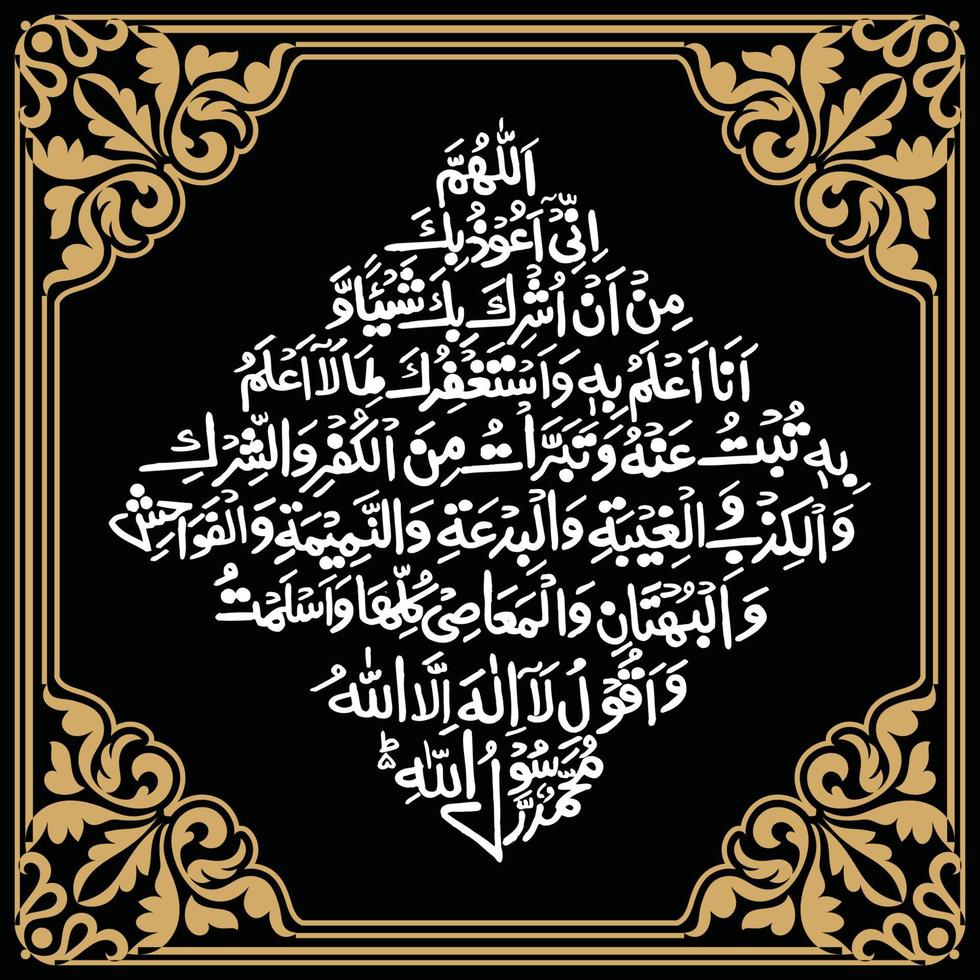 اَللّٰهُمَّ
اِنِّیْٓ اَعُوْذُ بِكَ
مِنْ اَنْ اُشْرِكَ بِكَ شَیْئًا وَّ
اَنَا اَعْلَمُ بِهٖ وَ اَسْتَغْفِرُكَ لِمَا لَآ اَعْلَمُ
بِهٖ تُبْتُ عَنْهُ وَ تَبَرَّاْتُ مِنَ الْكُفْرِ وَ الشِّرْكِ
وَ الْكِذْبِ وَ الْغِیْبَةِ وَ الْبِدْعَةِ وَ النَّمِیْمَةِ وَ الْفَوَاحِشِ
وَ الْبُهْتَانِ وَ الْمَعَاصِیْ كُلِّهَا وَ اَسْلَمْتُ
وَ اَقُوْلُ لَآ اِلٰهَ اِلَّا اللّٰهُ
مُحَمَّدٌ رَّسُوْلُ اللّٰهِ ؕ